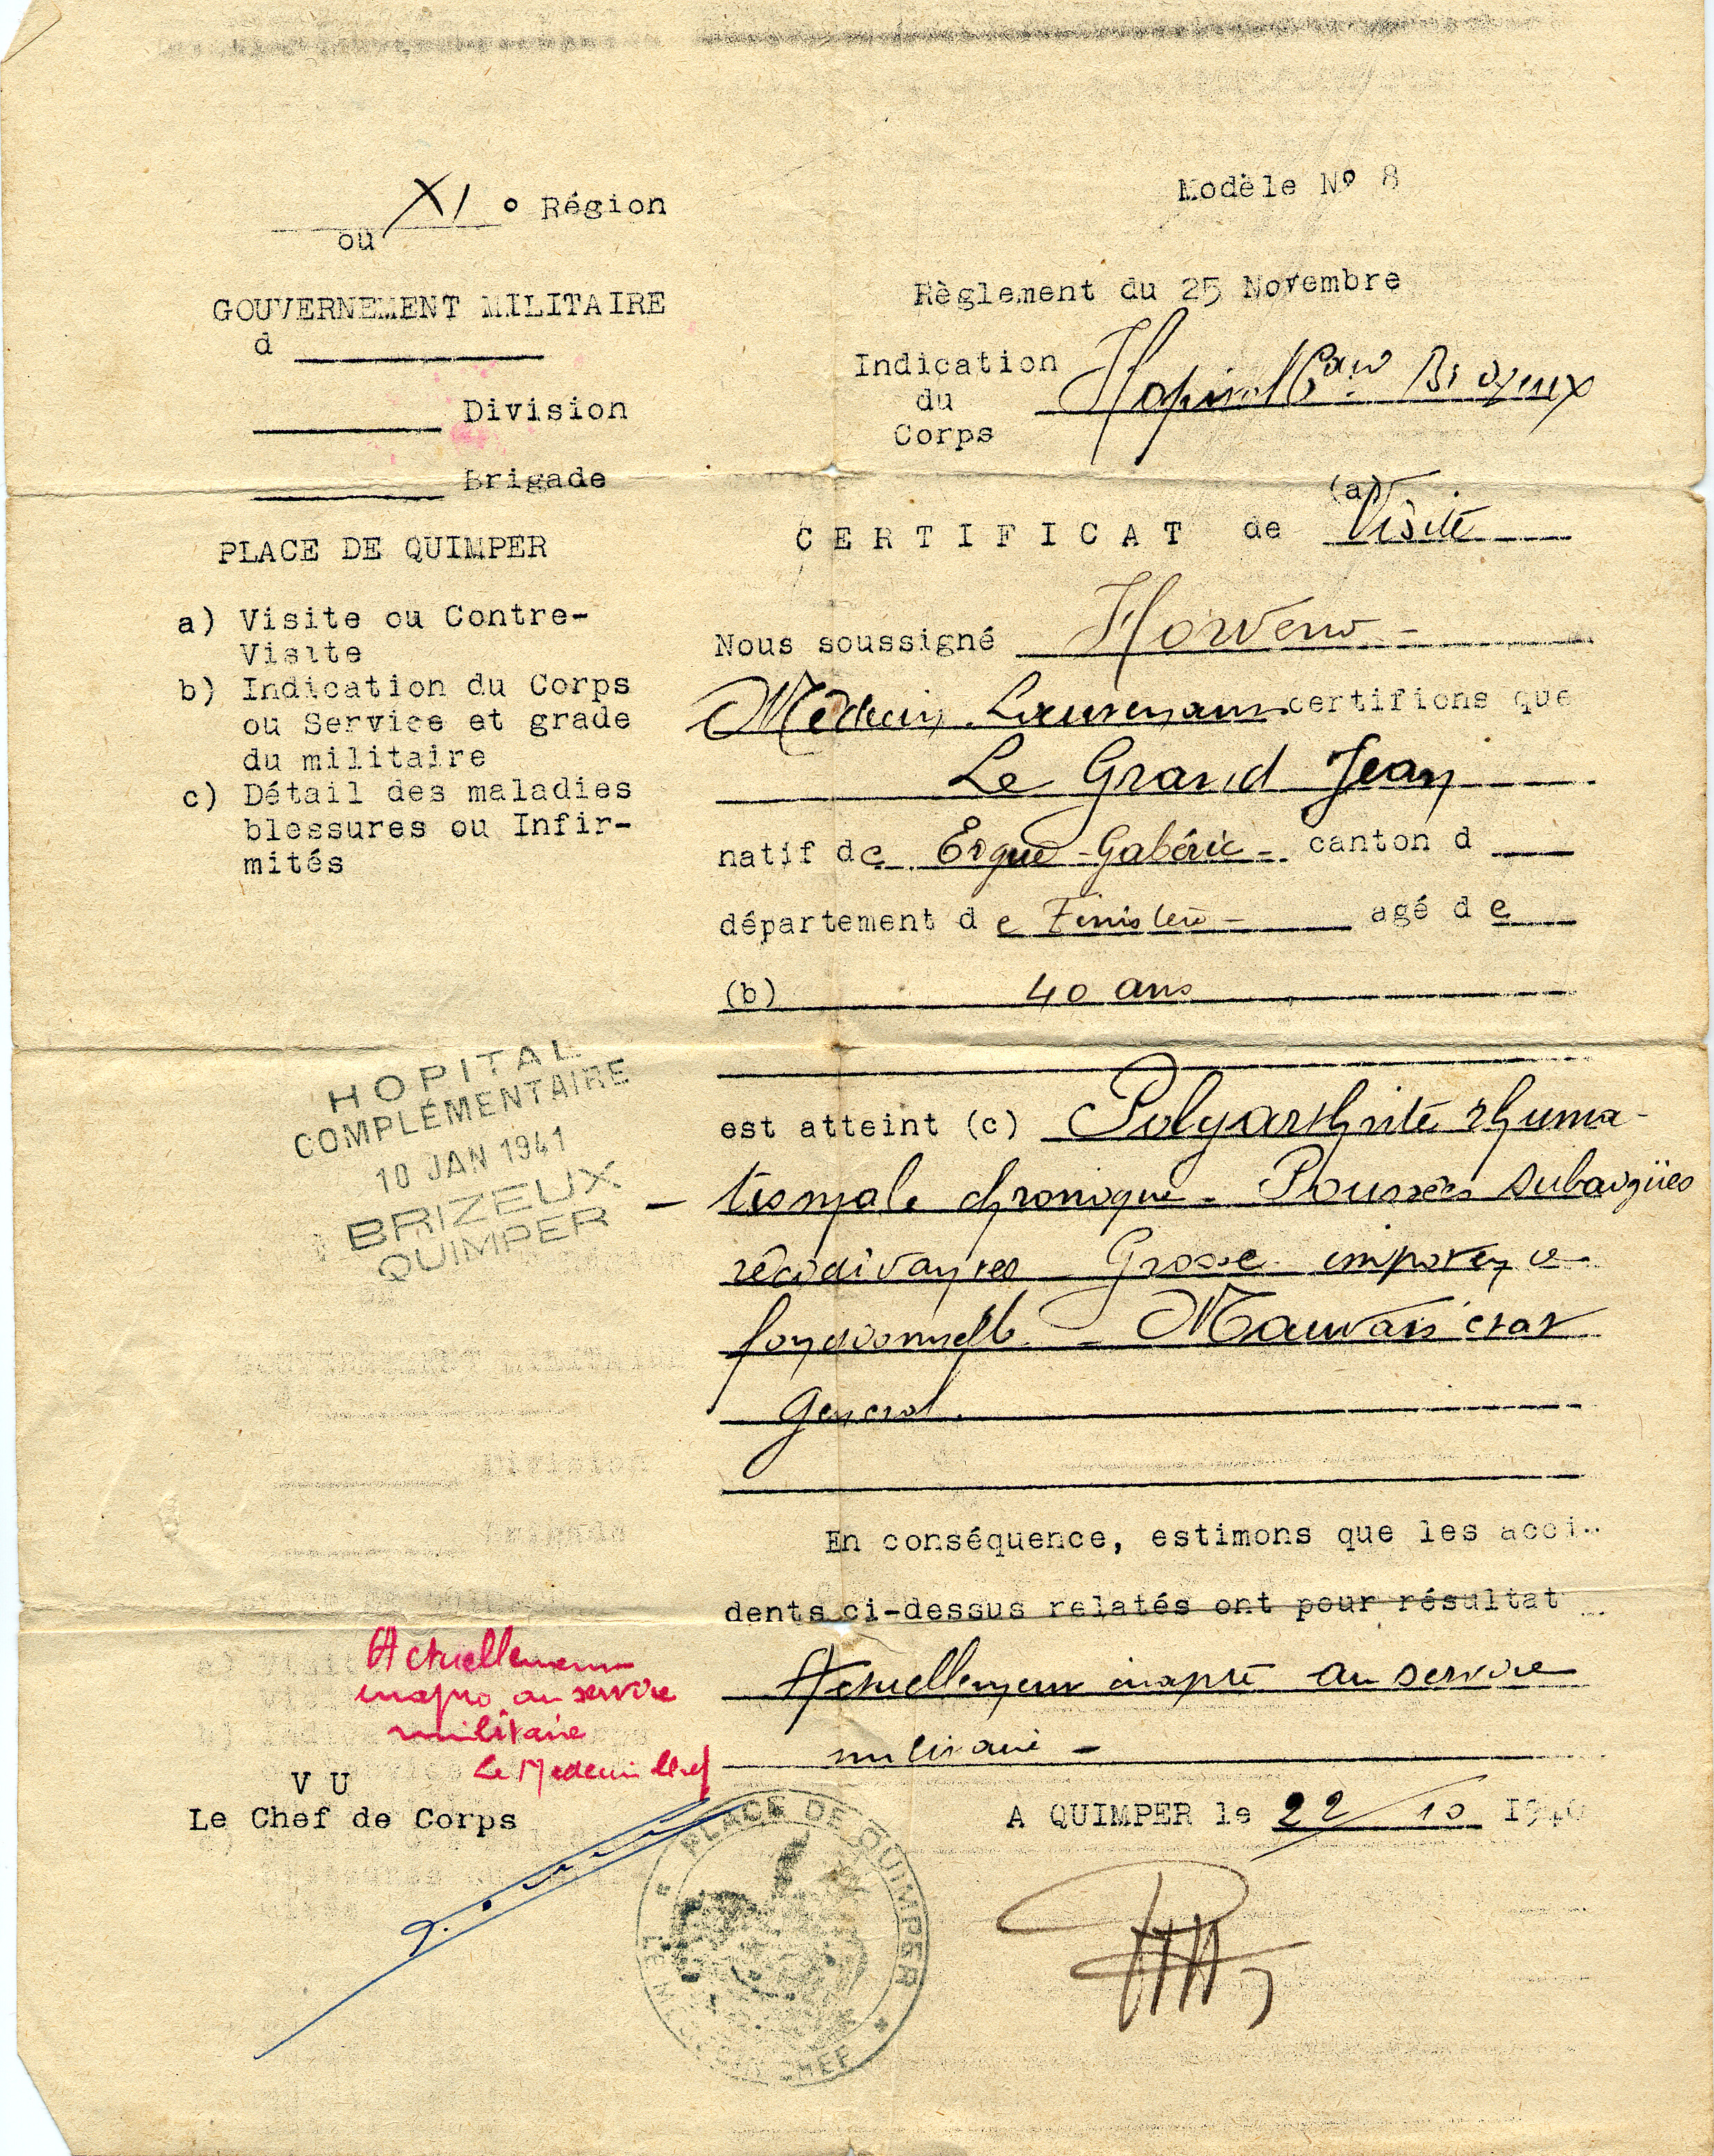 XI ° Région
ou
GOUVERNEMENT MILITAIRE
d
Division
Brigade
PLACE DE QUIMPER
a) Visite ou Contre-
Visite
b) Indication du Corps
ou Service et grade
du militaire
c) Détail des maladies
blessures ou Infir-
mités
HOPITAL
COMPLÉMENTAIRE
10 JAN 1941
BRIZEUX
QUIMPER
Modèle Nº 8
Règlement du 25 Novembre
Indication
du
Corps
Hopital Brizeux
(a)
CERTIFICAT de Visite
Nous soussigné
Médecin Lieutenant certifions que
Le Grand Jean
natif de Ergué-Gabéric - canton d
département de Finistère - agé de
(b) 40 ans
est atteint (c) Polyarthrite rhuma-
- tismale chronique - Poussées subaigües
récidivantes - Grosse impotence
fonctionnelle - Mauvais état
général.
En conséquence, estimons que les acci-
dents ci-dessus relatés ont pour résultat
Actuellement inapte au service
militaire -
A QUIMPER le 22/10 1940
Actuellement
inapte au service
militaire
Le Medecin Chef
VU
Le Chef de Corps
PLACE DE QUIMPER
LE MEDECIN CHEF